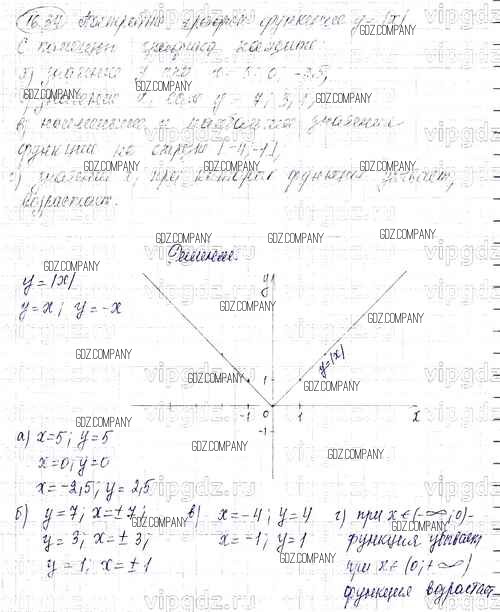 16.34 Построить график функции y = |x|
С помощью графика найдите:
а) значения y при x = 5; 0; -2,5;
значения x, если y = 7; 3; 1;
в) наименьшее и наибольшее значение
функции на отрезке [-4; -1];
г) значения x, при которых функция убывает,
возрастает.
Решение.
y = |x|
y = x; y = -x
y
y=|x|
1
-1 0 1 x
-1
а) x=5; y=5
x=0; y=0
x=-2,5; y=2,5
б) y=7; x=±7;
y=3; x=±3;
y=1; x=±1
в) x=-4; y=4
x=-1; y=1
г) при x∈(-∞; 0)-
функция убывает,
при x∈(0; +∞)
функция возрастает
GDZ.COMPANY
vipgdz